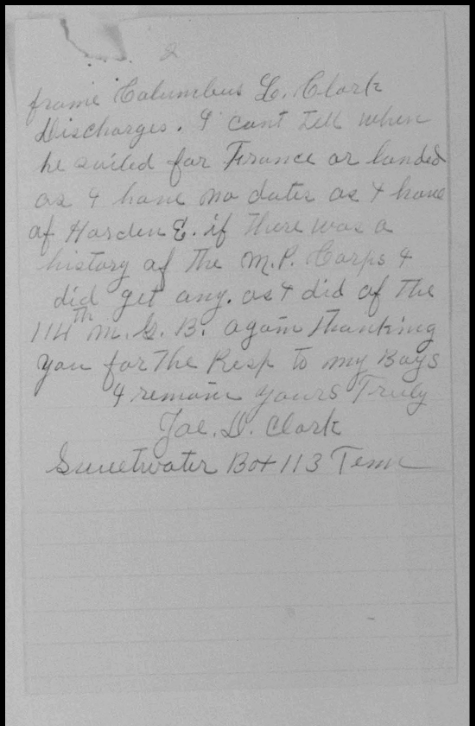 2
frome Columbus L. Clark
Discharges. I cant tell when
he sailed for France or landed
as I have no dates as I have
of Harden E. if there was a
history of the M.P. Corps I
did get any. as I did of the
114th M. G. B. again Thanking
you for the Resp to my Boys
I remain yours Truly
Joe. D. Clark
Sweetwater Box 113 Tenn